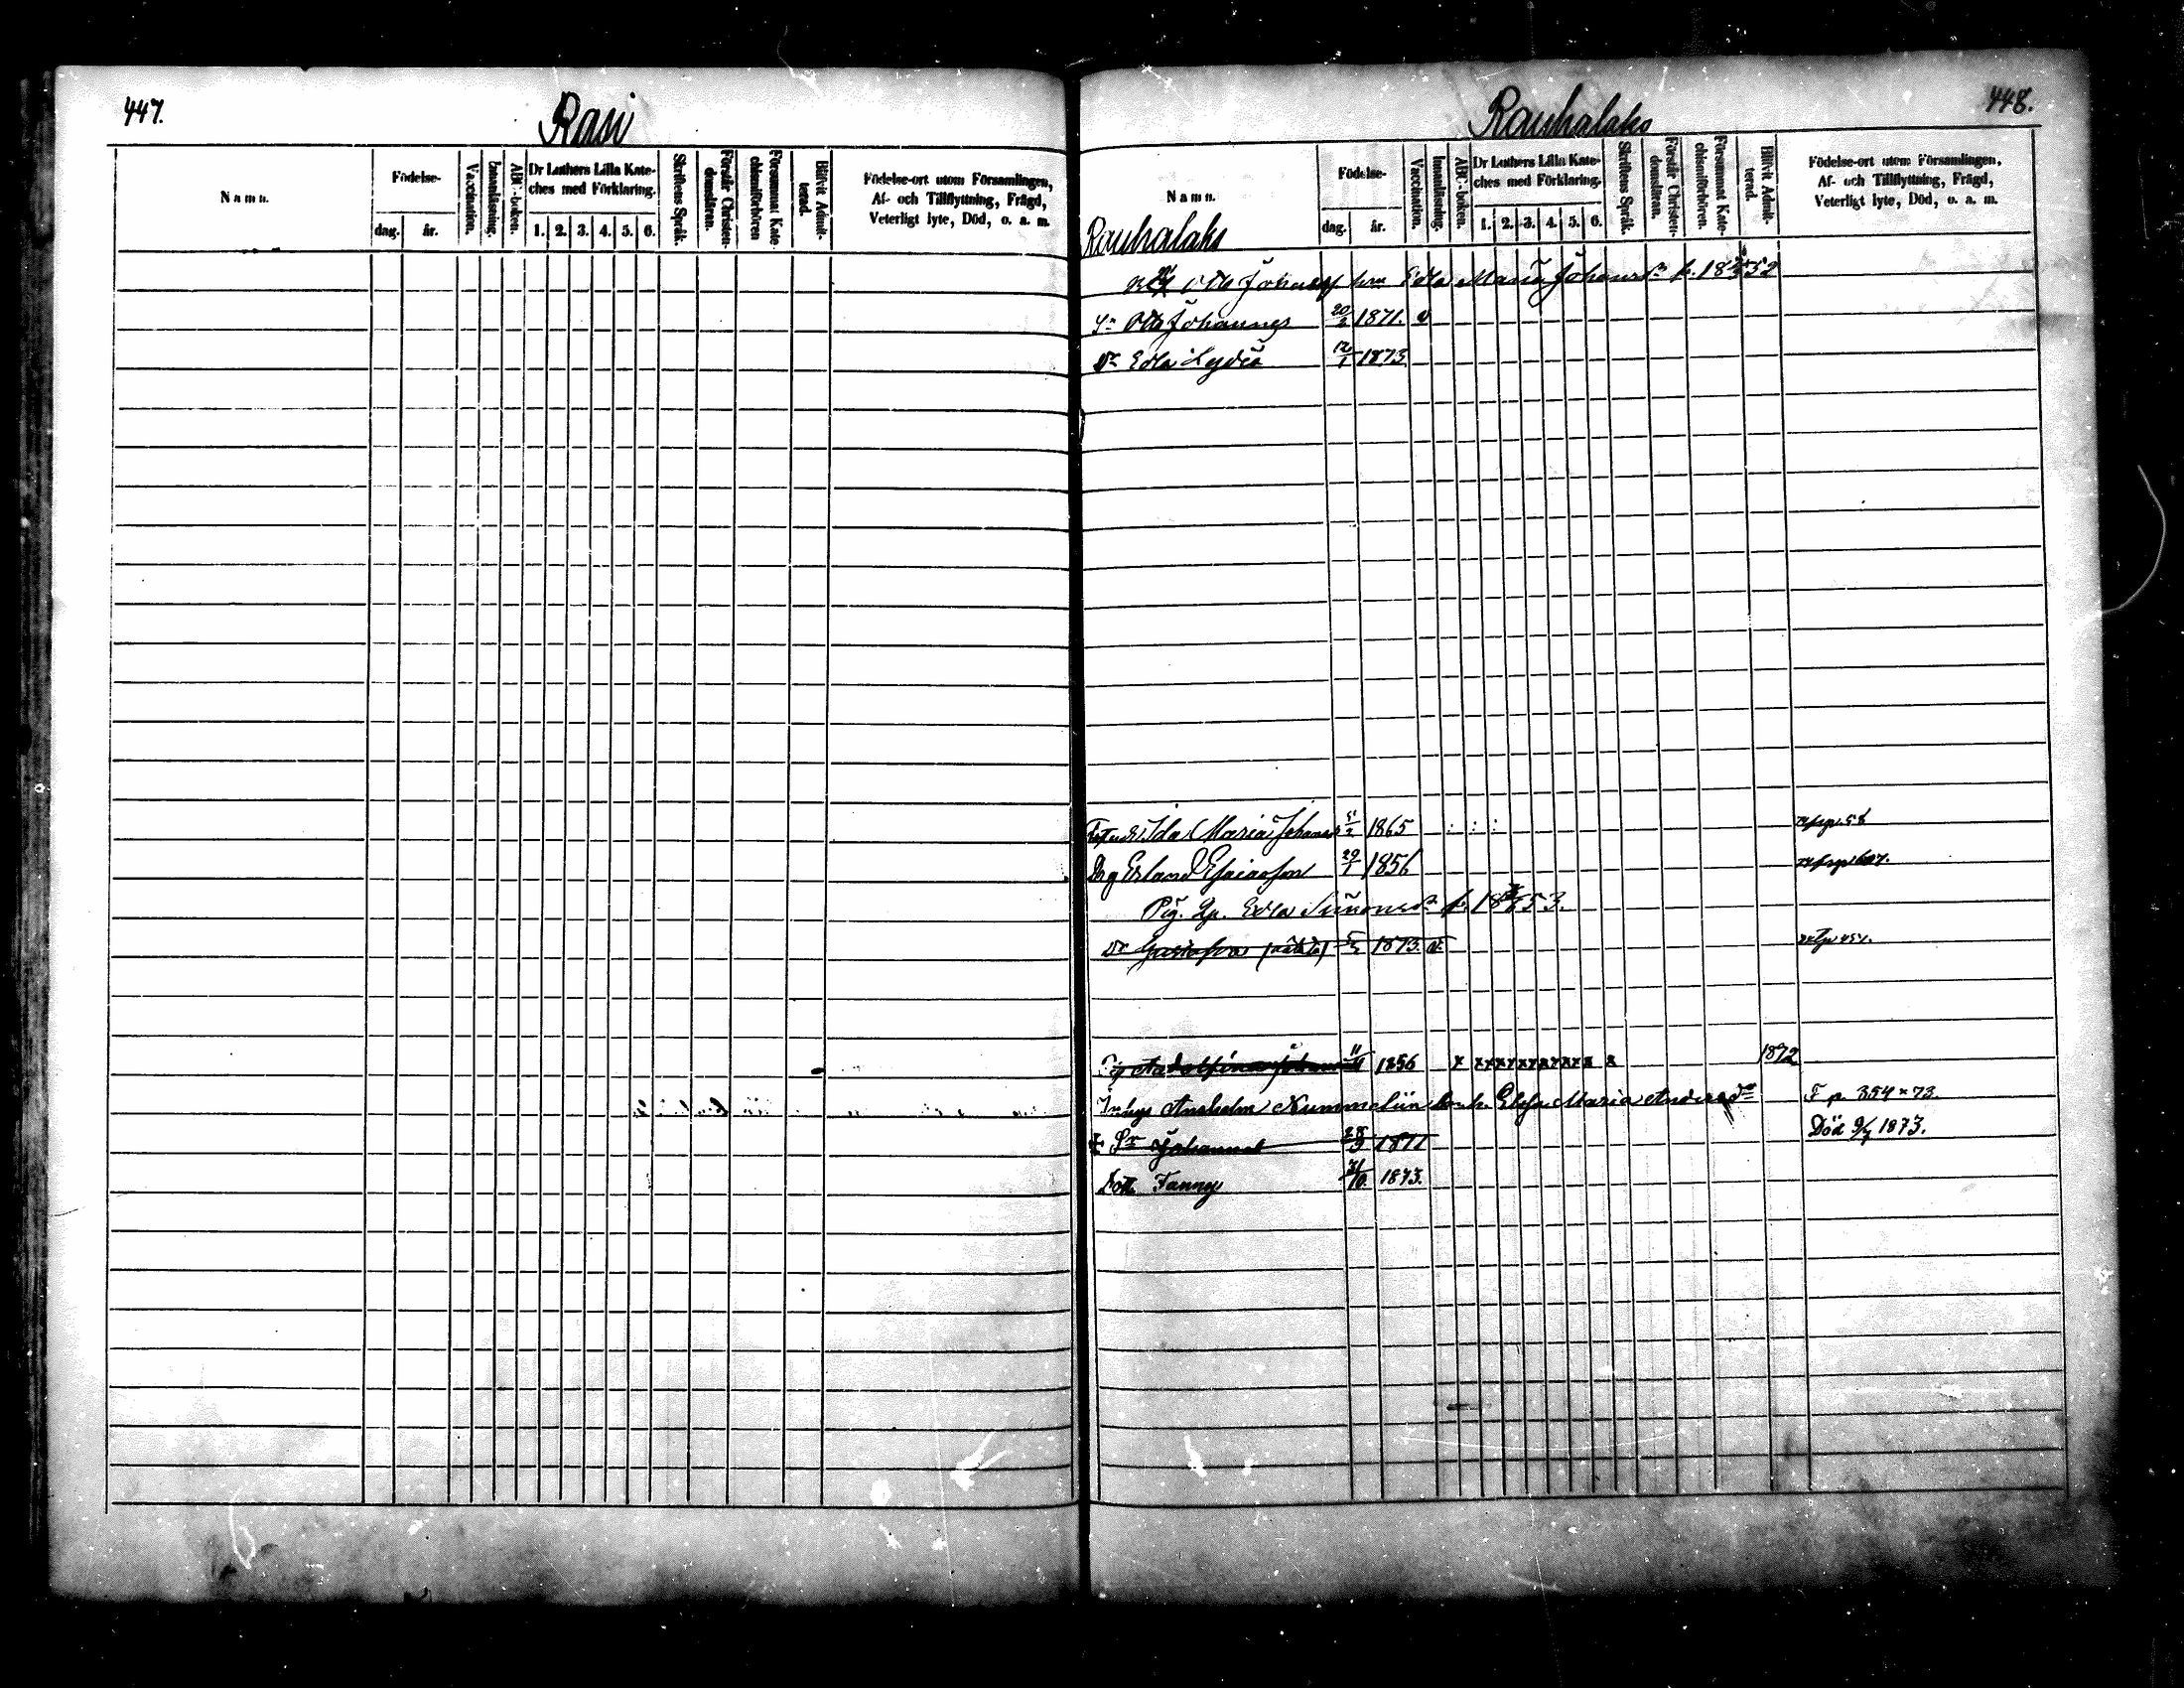 447.
Rasi
Namn.
Födelse-
dag. år.
Vaccination.
Innanläsning.
ABC-boken.
Dr Luthers Lilla Kate-
ches med Förklaring.
1. 2. 3. 4. 5. 6.
Skriftens Språk.
Förstår Christen-
domsläran.
Försummat Kate-
chismiförhören
Blifvit Admit-
terad.
Födelse-ort utom Församlingen,
Af- och Tillflyttning, Frägd,
Veterligt lyte, Död, o. a. m.
448.
Rauhalaks
Namn.
Födelse-
dag. år.
Vaccination.
Innanläsning.
ABC-boken.
Dr Luthers Lilla Kate-
ches med Förklaring.
1. 2. 3. 4. 5. 6.
Skriftens Språk.
Förstår Christen-
domsläran.
Försummat Kate-
chismiförhören.
Blifvit Admit-
terad.
Födelse-ort utom Församlingen,
Af- och Tillflyttning, Frägd,
Veterligt lyte, Död, o. a. m.
Rauhalaks
Otto Johansson Edla Maria Johansdr
Sn Otto Johannes 20/2 1871. v
Dr Edla Lydia 12/1 1873
Ida Maria Johansdr 5/2 1865
Drg Erland Esaiasson 29/1 1856
Pig. Edla Simonsdr
Dr Gustafva 1873. v.
Pig Adolfina Johansdr 11/11 1856 x x x x x x x x x x 1872
Inhys Anshelm Nummelin Elefa Maria Andersdr F p. 354 x 73.
† Sn Johannes 28/9 1871 Död 9/7 1873.
Dott. Fanny 31/10. 1873.